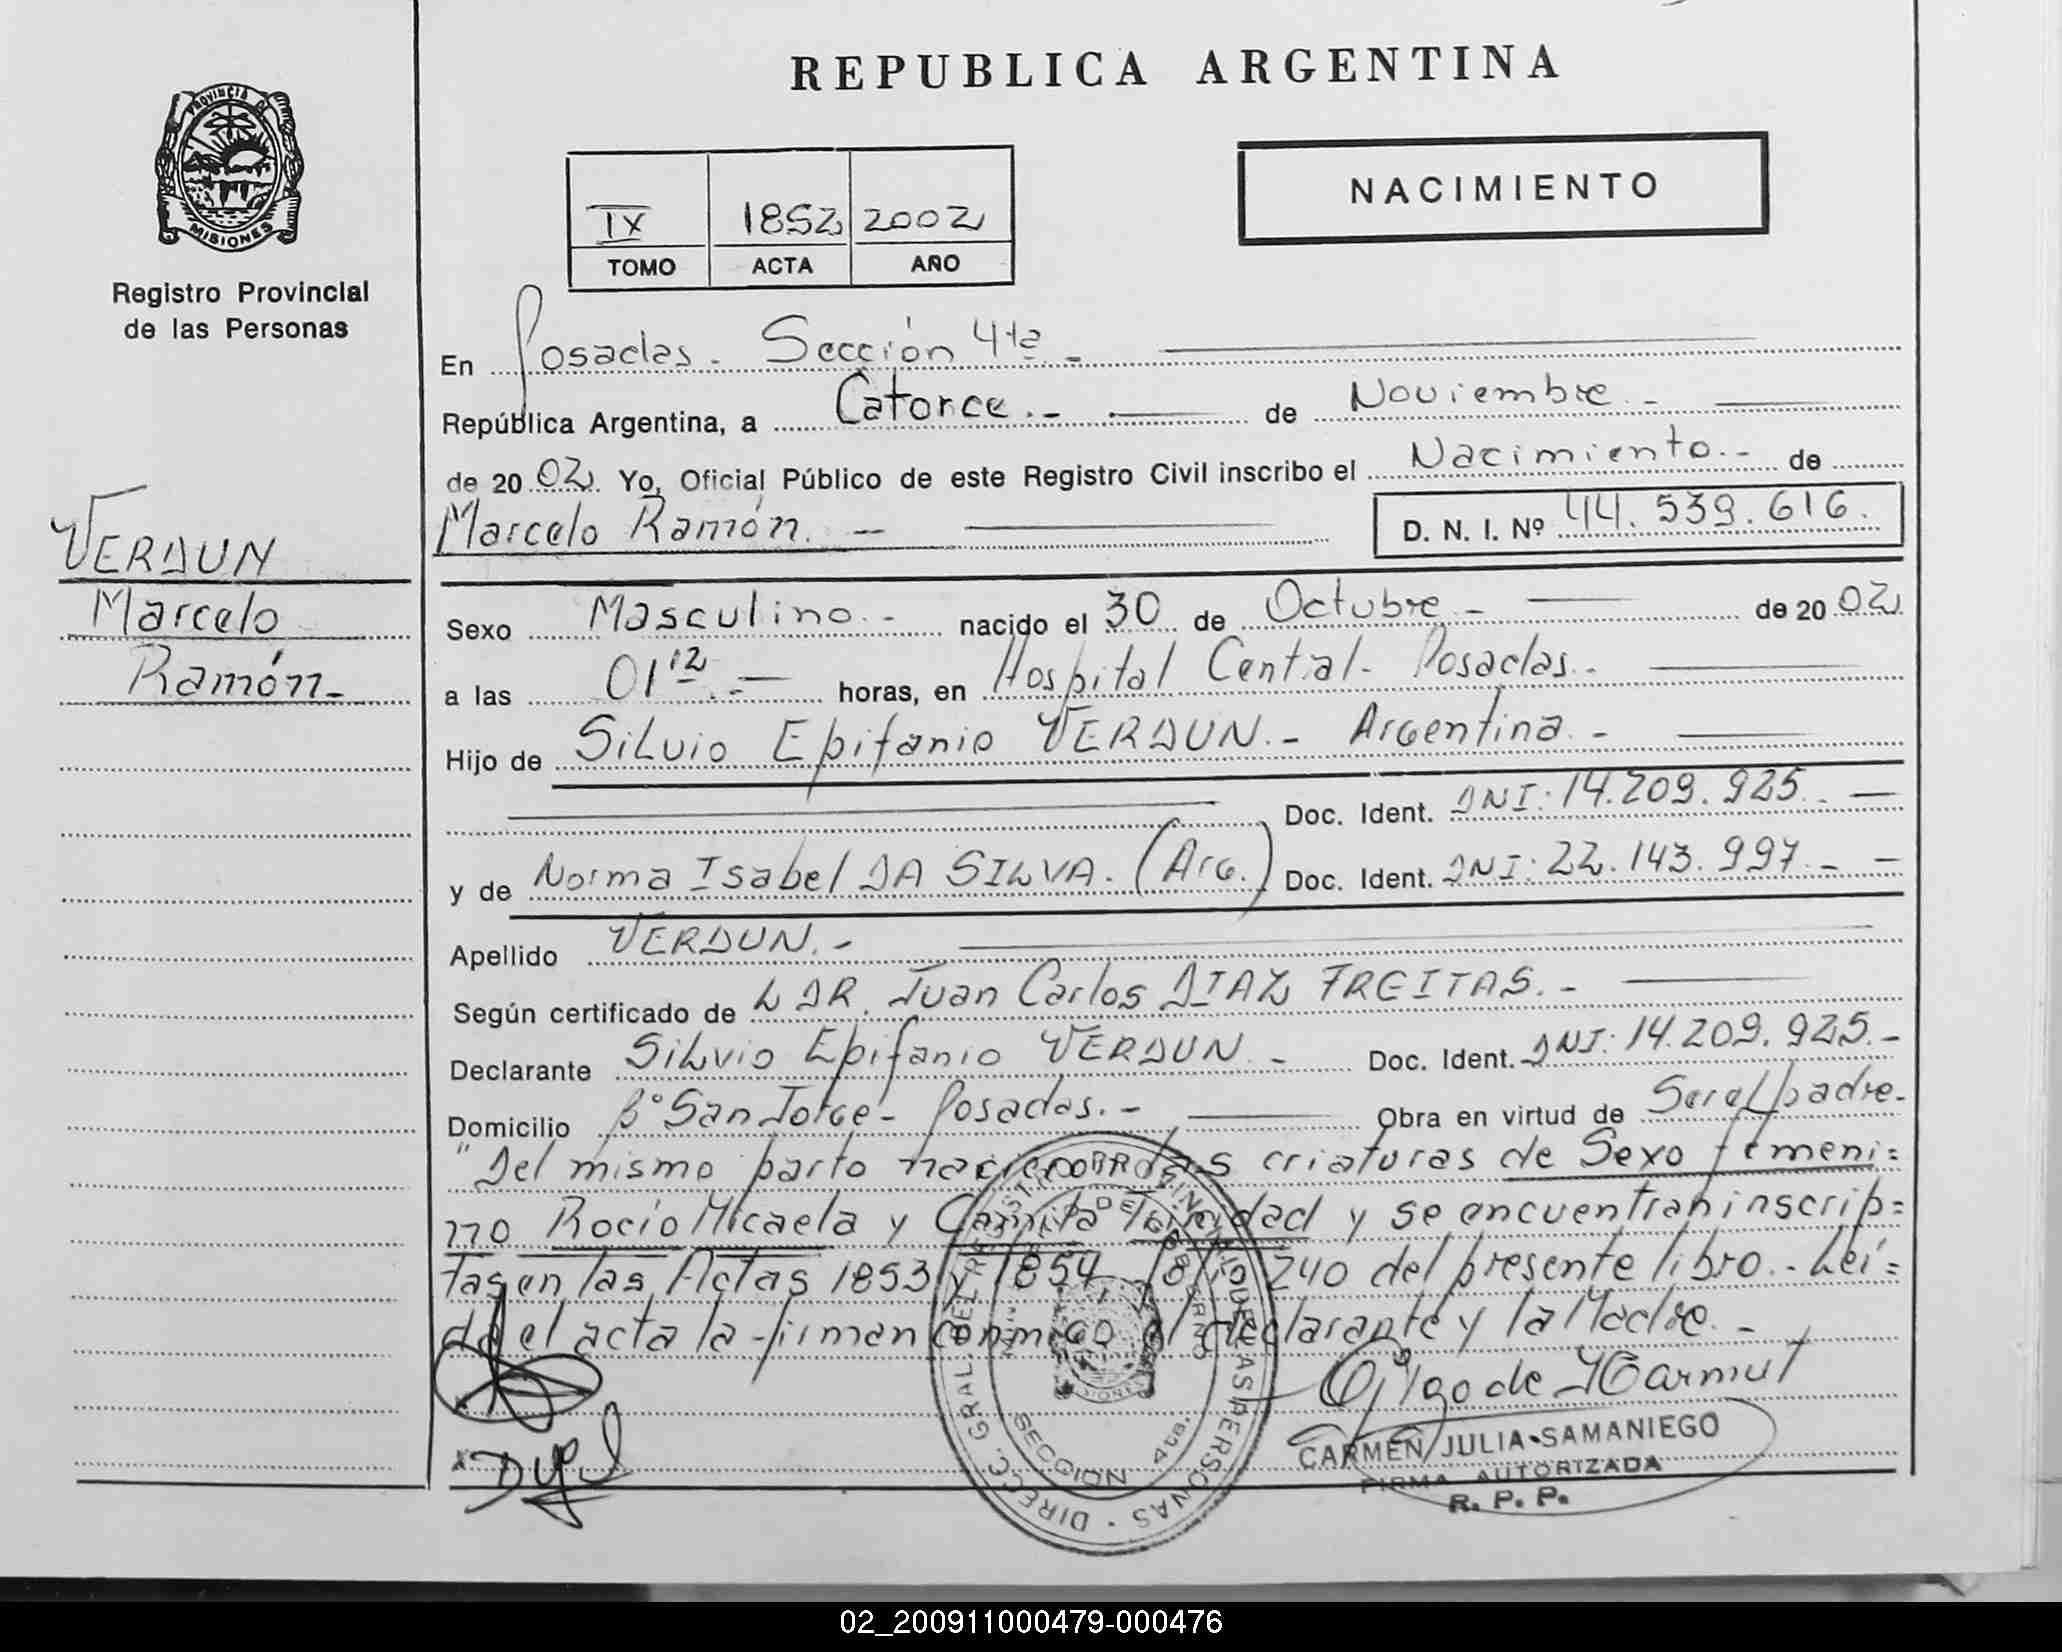 REPUBLICA ARGENTINA
PROVINCIA DE
MISIONES
Registro Provincial
de las Personas
IX 1852 2002
TOMO ACTA AÑO
NACIMIENTO
En Posadas. Sección 4ta.-
República Argentina, a Catorce.- de Noviembre.-
de 2002. Yo, Oficial Público de este Registro Civil inscribo el Nacimiento.- de
Marcelo Ramón.- D. N. I. Nº 44.539.616.
VERDUN
Marcelo
Ramón.-
Sexo Masculino.- nacido el 30 de Octubre.- de 2002
a las 01 12.- horas, en Hospital Central- Posadas.-
Hijo de Silvio Epifanio VERDUN.- Argentina.-
Doc. Ident. DNI: 14.209.925.-
y de Norma Isabel DA SILVA. (Arg.) Doc. Ident. DNI: 22.143.997.-
Apellido VERDUN.-
Según certificado de DR. Juan Carlos DIAZ FREITAS.-
Declarante Silvio Epifanio VERDUN.- Doc. Ident. DNI: 14.209.925.-
Domicilio Bº San Jorge- Posadas.- Obra en virtud de Ser el padre.-
"Del mismo parto nacieron dos criaturas de Sexo femeni=
no Rocío Micaela y Trinidad y se encuentran inscrip=
tas en las Actas 1853 y 1854 240 del presente libro.- Leí=
da el acta la firman conmigo el declarante y la Madre.-
DIRECC. GRAL. DEL REGISTRO PROVINCIAL DE LAS PERSONAS
SECCION 4ta.
CARMEN JULIA SAMANIEGO
FIRMA AUTORIZADA
R. P. P.
02_200911000479-000476